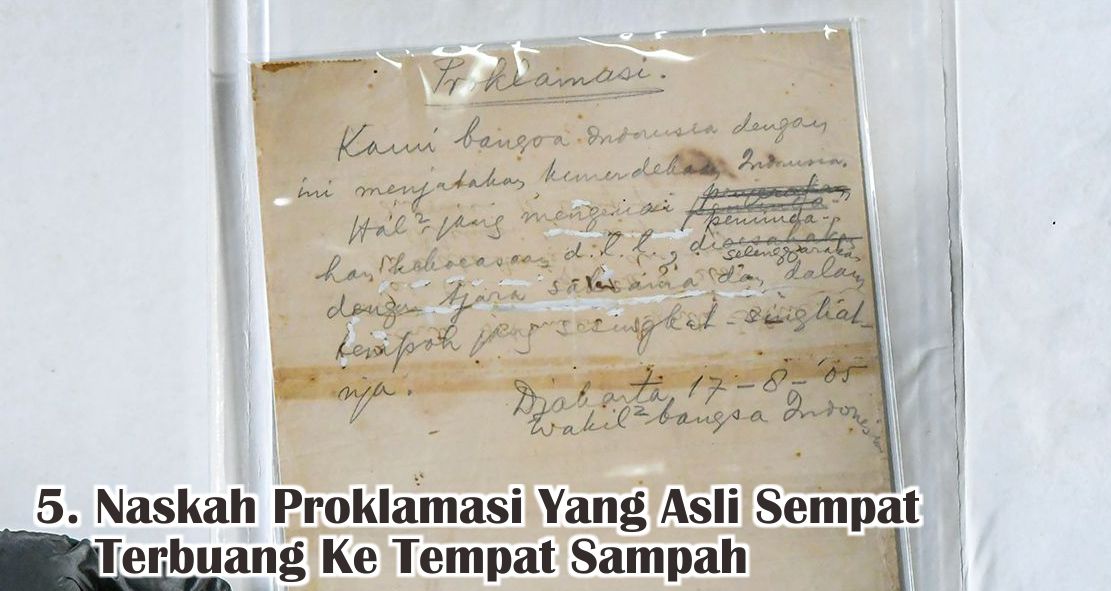 Proklamasi.
Kami bangsa Indonesia dengan
ini menjatakan kemerdekaan Indonesia.
Hal² jang mengenai
peminda-
han kekoeasaan d.l.l., dioesahakan
selenggarakan
dengan tjara saksama dan dalam
tempoh jang sesingkat-singkat-
nja.
Djakarta 17-8-'05
Wakil² bangsa Indonesia
5. Naskah Proklamasi Yang Asli Sempat
Terbuang Ke Tempat Sampah